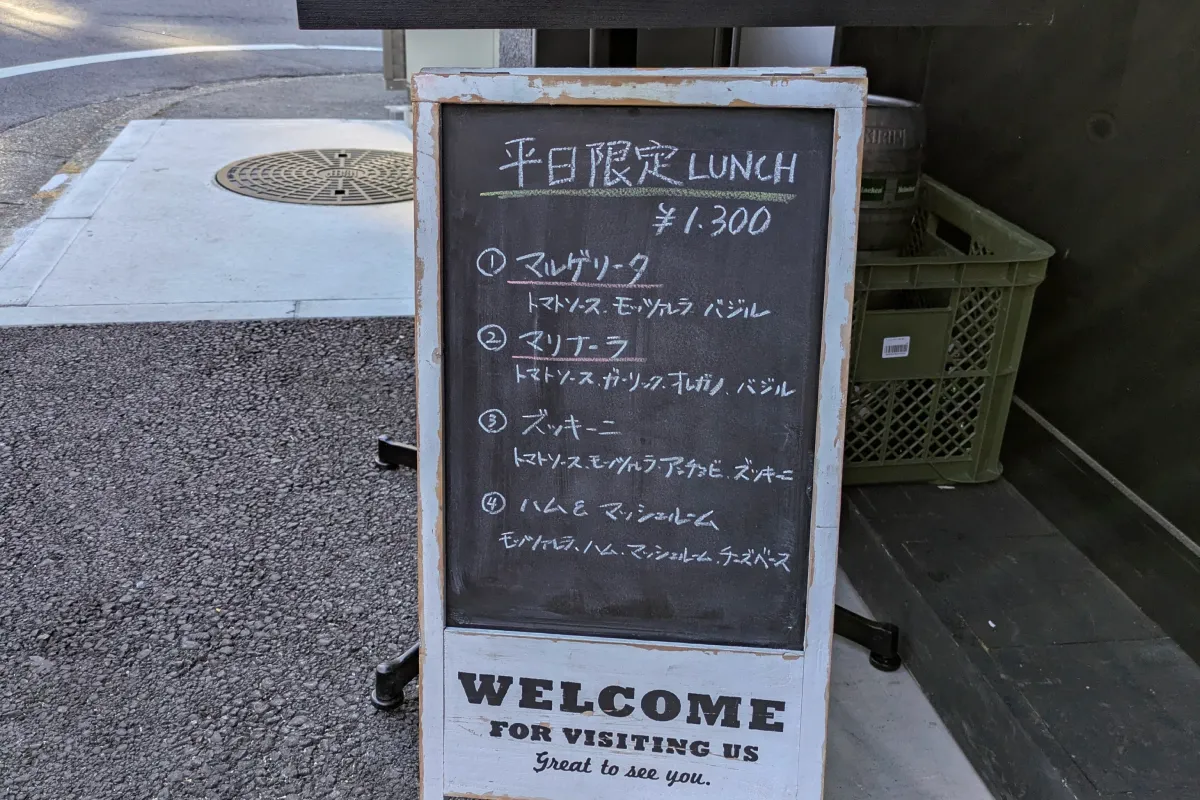 平日限定LUNCH
¥1.300
① マルゲリータ
トマトソース、モッツァレラ バジル
② マリナーラ
トマトソース、ガーリック、オレガノ、バジル
③ ズッキーニ
トマトソース、モッツァレラ、アンチョビ、ズッキーニ
④ ハム & マッシュルーム
モッツァレラ、ハム、マッシュルーム、チーズベース
WELCOME
FOR VISITING US
Great to see you.
KIRIN
Heineken